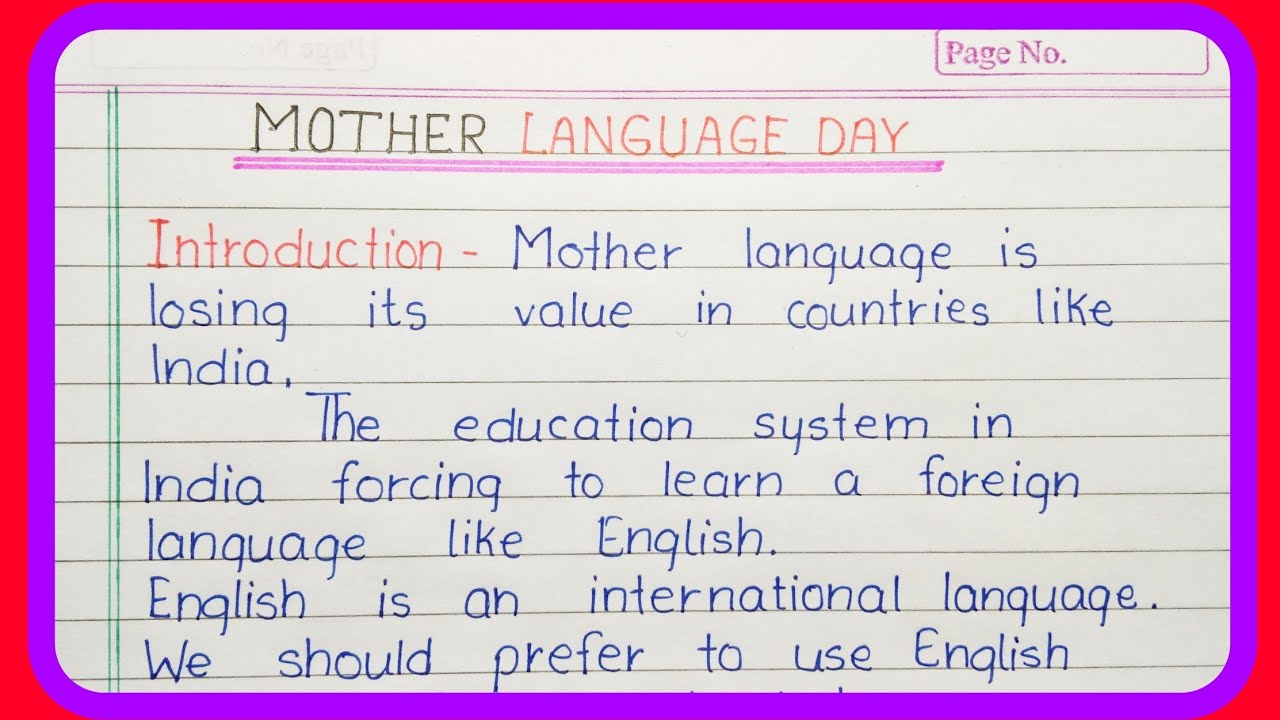 Page No.
MOTHER LANGUAGE DAY
Introduction - Mother language is
losing its value in countries like
India.
The education system in
India forcing to learn a foreign
language like English.
English is an international language.
We should prefer to use English